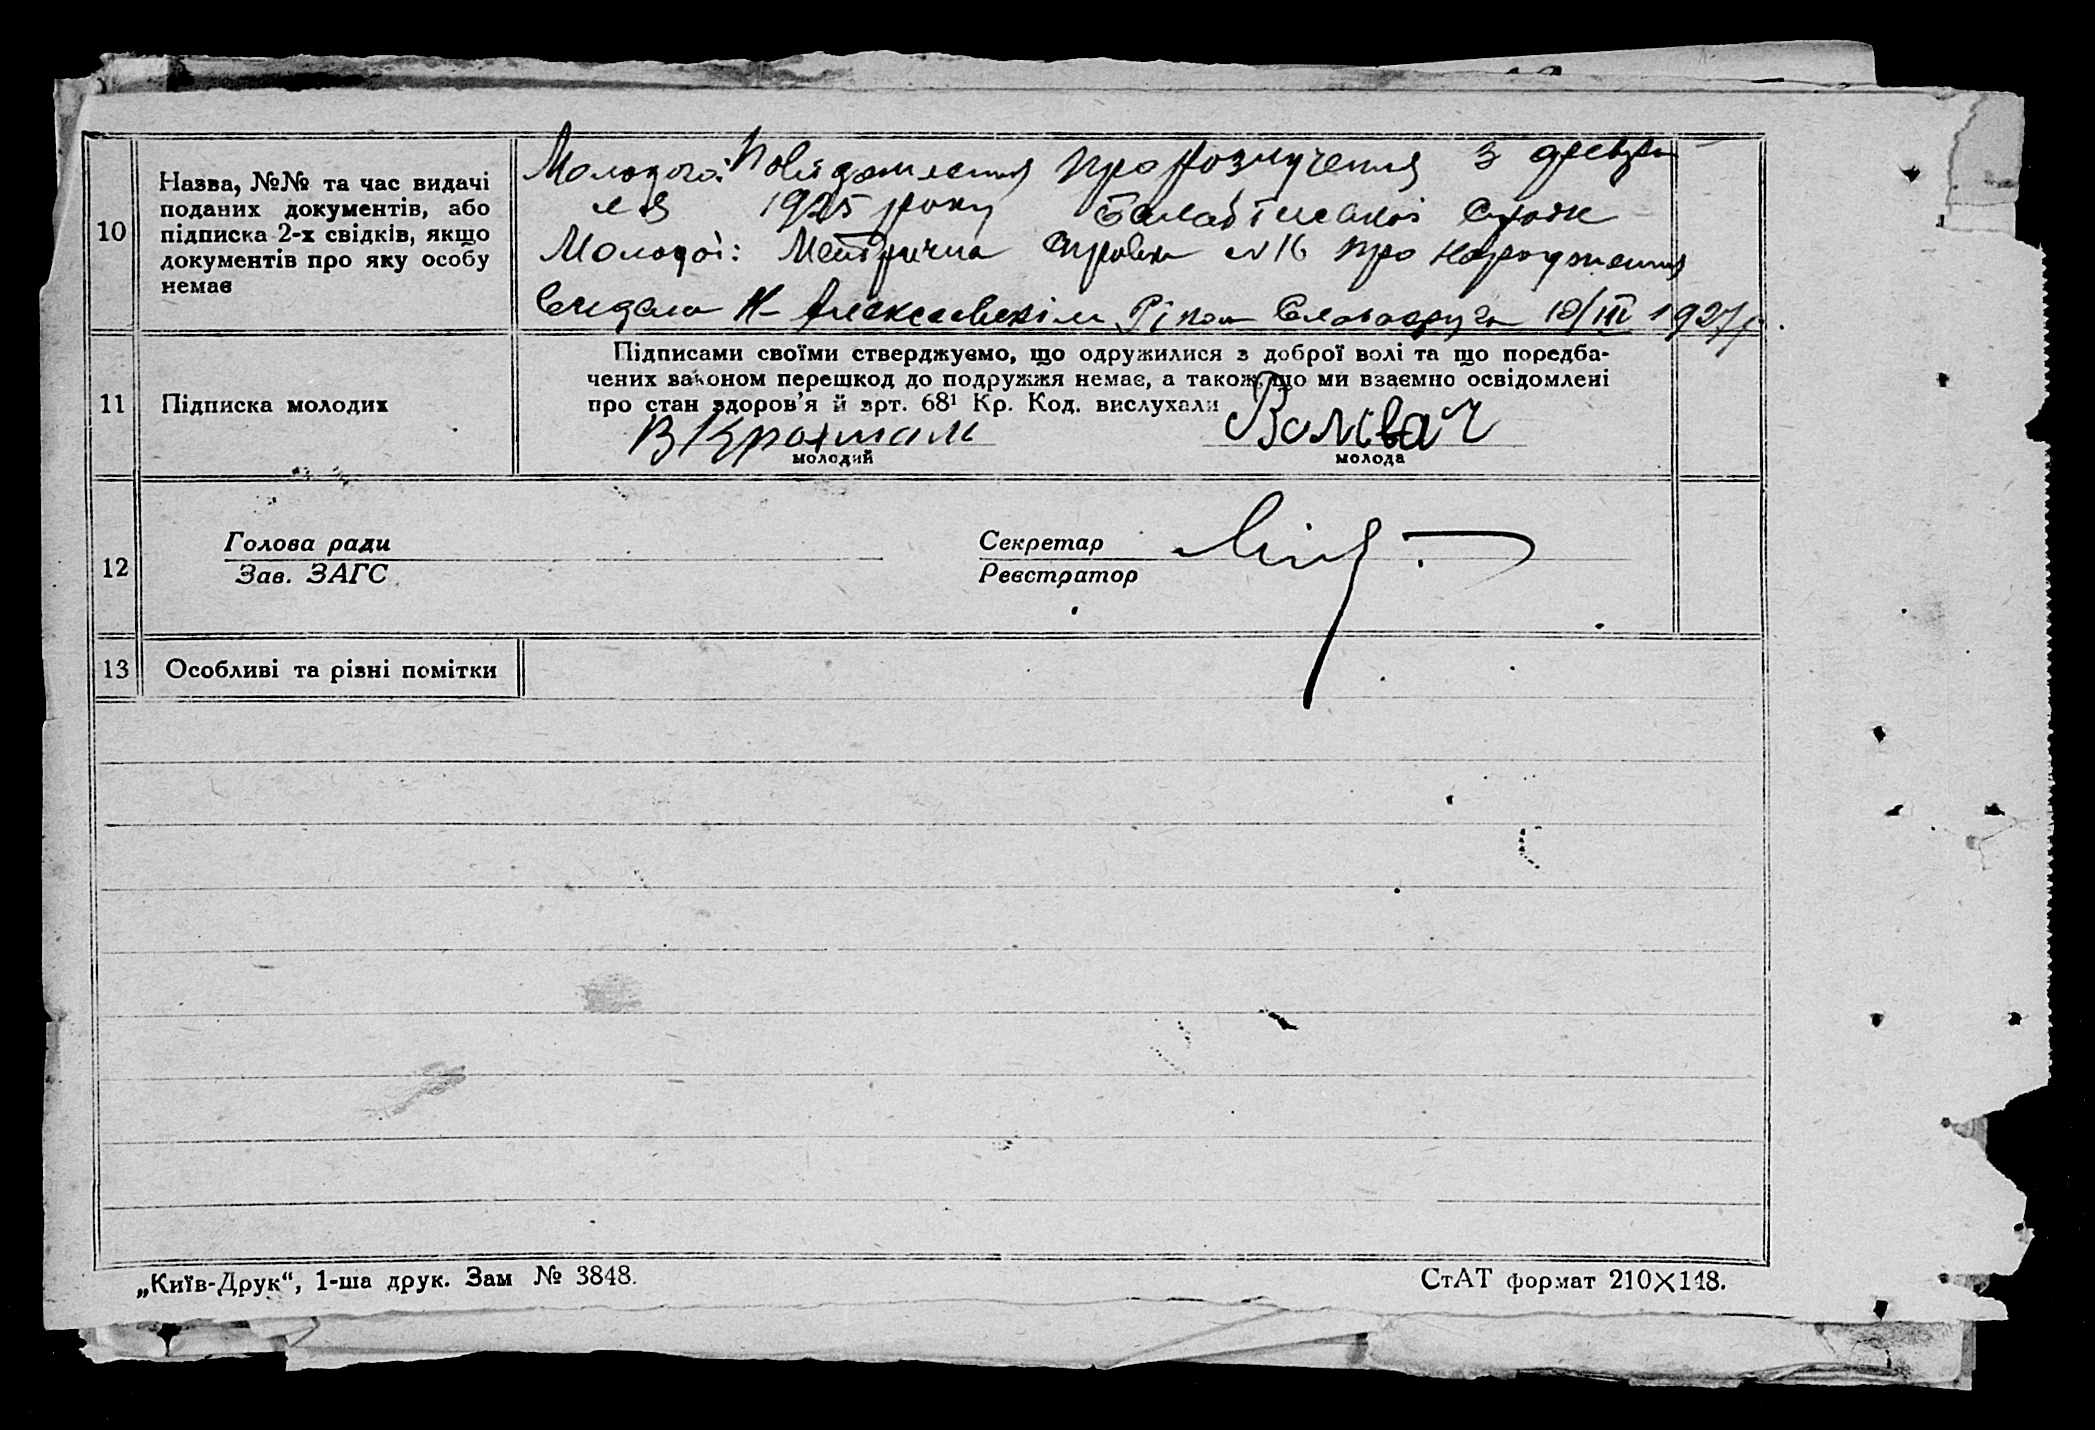 10
Назва, №№ та час видачі
поданих документів, або
підписка 2-х свідків, якщо
документів про яку особу
немає
Молодого: Повідомлення про Розлучення з
1925 року
Молодої: Метрична справка №16 про народження
Видана Н- Алексеевскім 10/III 1927р.
11
Підписка молодих
Підписами своїми стверджуємо, що одружилися з доброї волі та що поредба-
чених законом перешкод до подружжя немає, а також, що ми взаємно освідомлені
про стан здоров'я й арт. 68¹ Кр. Код. вислухали
В Крохмаль
Волівач
молодий
молода
12
Голова ради
Зав. ЗАГС
Секретар
Реєстратор
13
Особливі та різні помітки
„Київ-Друк“, 1-ша друк. Зам № 3848.
СтАТ формат 210×148.